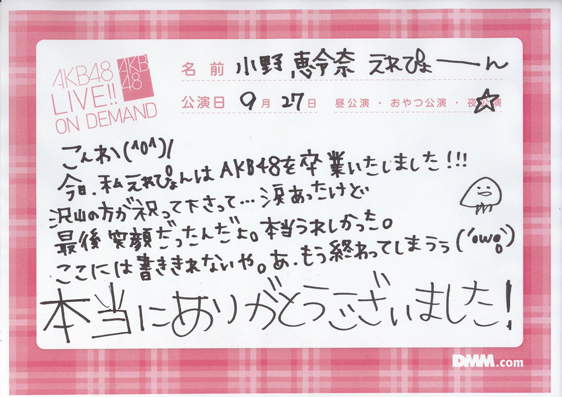 AKB48
LIVE!!
ON DEMAND
AKB
48
名前 小野 恵令奈 えれぴょーーん
公演日 9月27日 昼公演・おやつ公演・夜公演
こんわ(^0^)/
今日、私えれぴょんはAKB48を卒業いたしました!!!
沢山の方が祝って下さって…涙あったけど
最後笑顔だったんだよ。本当うれしかった。
ここには書ききれないや。あ、もう終わってしまうぅ(´ow0`)
本当にありがとうございました!
DMM.com